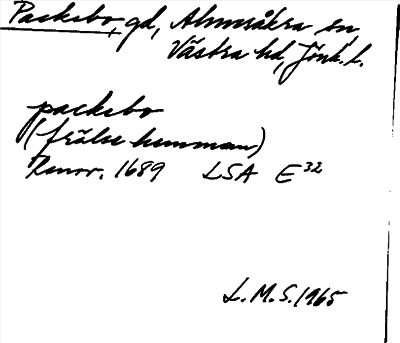 Packebo, gd, Almesåkra sn,
Västra hd, Jönk. l.
packebo
(frälse hemman)
Renov. 1689 LSA E³²
L.M.S. 1965